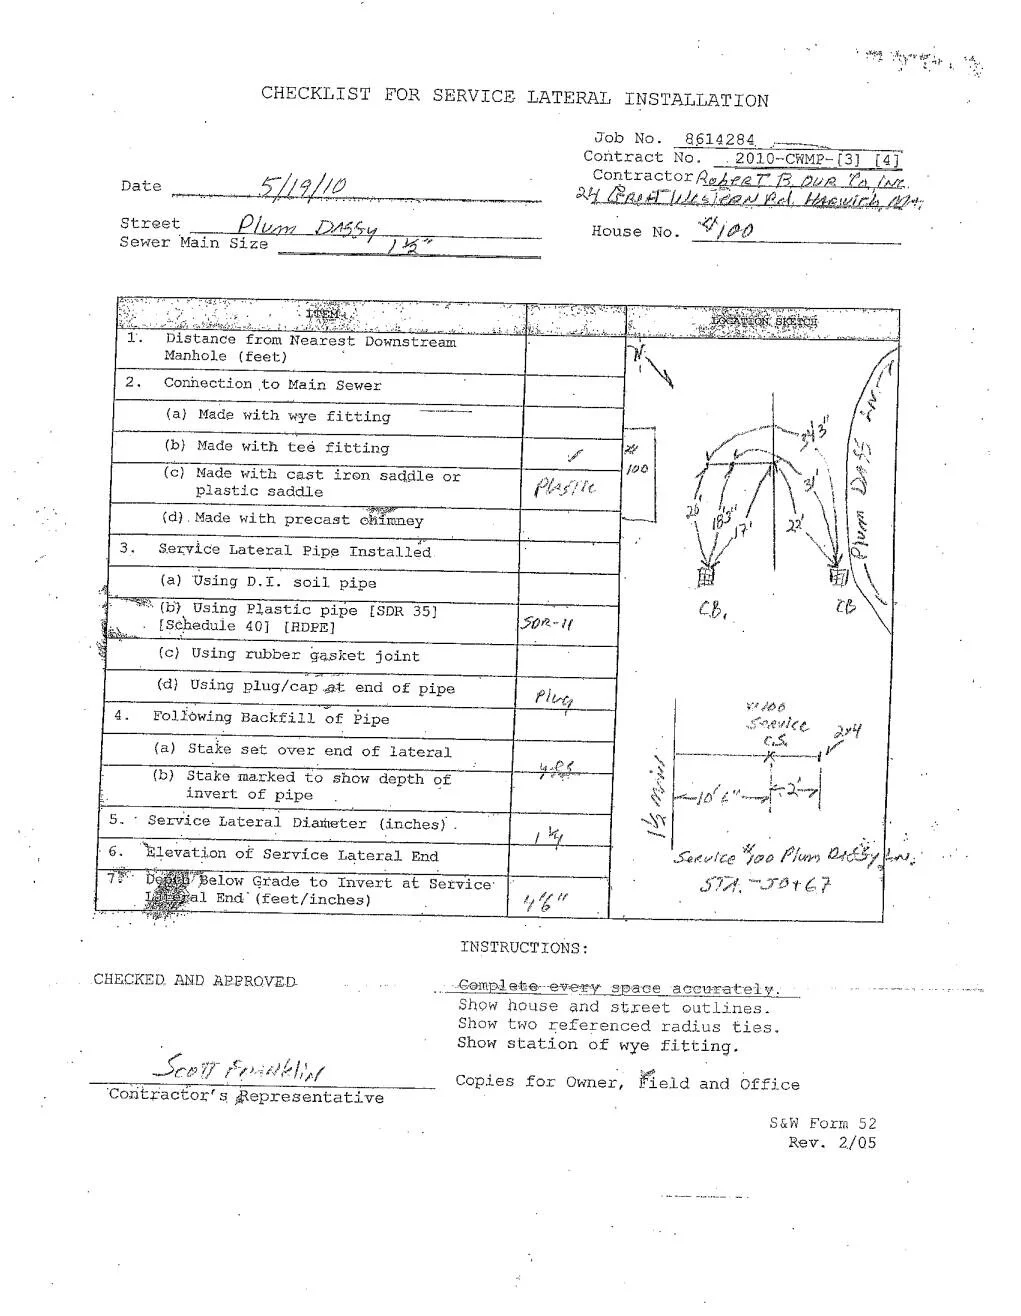 CHECKLIST FOR SERVICE LATERAL INSTALLATION
Job No. 8614284
Contract No. 2010-CWMP-[3] [4]
Contractor Robert B. Our Co, Inc.
24 Great Western Rd. Harwich, MA.
Date 5/19/10
Street Plum Dassy
House No. #100
Sewer Main Size 1 1/2"
ITEM
LOCATION SKETCH
1. Distance from Nearest Downstream
Manhole (feet)
2. Connection to Main Sewer
(a) Made with wye fitting
(b) Made with tee fitting ✓
(c) Made with cast iron saddle or
plastic saddle Plastic
(d) Made with precast chimney
3. Service Lateral Pipe Installed
(a) Using D.I. soil pipe
(b) Using Plastic pipe [SDR 35]
[Schedule 40] [HDPE] SDR-11
(c) Using rubber gasket joint
(d) Using plug/cap at end of pipe Plug
4. Following Backfill of Pipe
(a) Stake set over end of lateral
yes
(b) Stake marked to show depth of
invert of pipe
5. Service Lateral Diameter (inches) 1 1/4
6. Elevation of Service Lateral End
7. Depth Below Grade to Invert at Service
Lateral End (feet/inches) 4'6"
N
#
100
34'3"
31'
26'
18'3"
17'
22'
CB.
CB
Plum Dass Ln.
#100
Service
C.S.
2x4
10'6"
2'
1 1/2 main
Service #100 Plum Dassy Ln.
STA. - 50+67
INSTRUCTIONS:
CHECKED AND APPROVED
Complete every space accurately.
Show house and street outlines.
Show two referenced radius ties.
Show station of wye fitting.
Scott Franklin
Contractor's Representative
Copies for Owner, Field and Office
S&W Form 52
Rev. 2/05